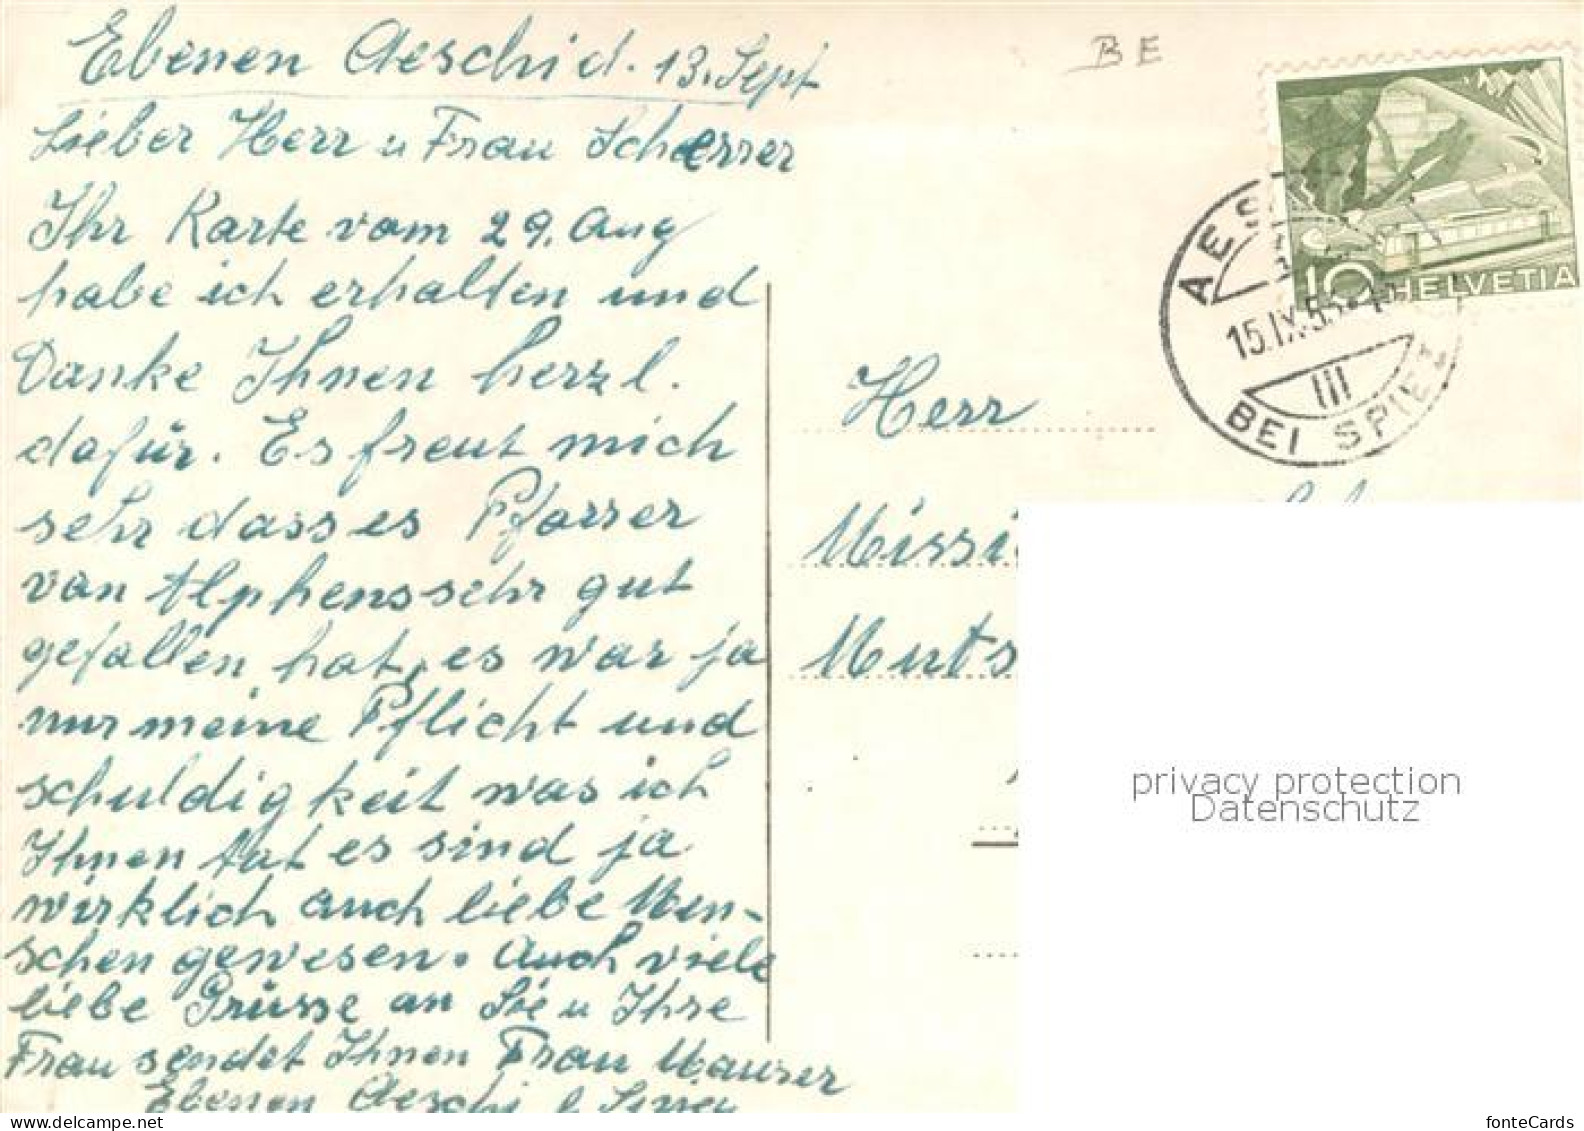 Ebenen Aeschi d. 13. Sept
BE
Lieber Herr u Frau Scherrer
Ihr Karte vom 29. Aug
habe ich erhalten und
Danke Ihnen herzl.
dafür. Es freut mich
sehr dass es Pfarrer
von Alphens sehr gut
gefallen hat, es war ja
nur meine Pflicht und
schuldigkeit was ich
Ihnen tat es sind ja
wirklich auch liebe Men-
schen gewesen. Auch viele
liebe Grüsse an Sie u Ihre
Frau sendet Ihnen Frau Maurer
Ebenen Aeschi b
HELVETIA
10
AES
15.IX.5
III
BEI SPIEZ
Herr
Missi
Muts
privacy protection
Datenschutz
fonteCards